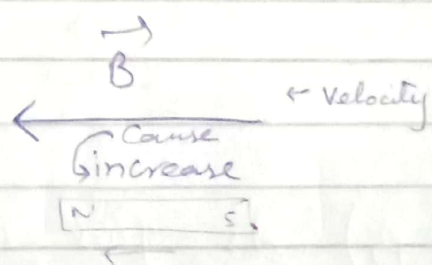 B
← velocity
cause
increase
N S